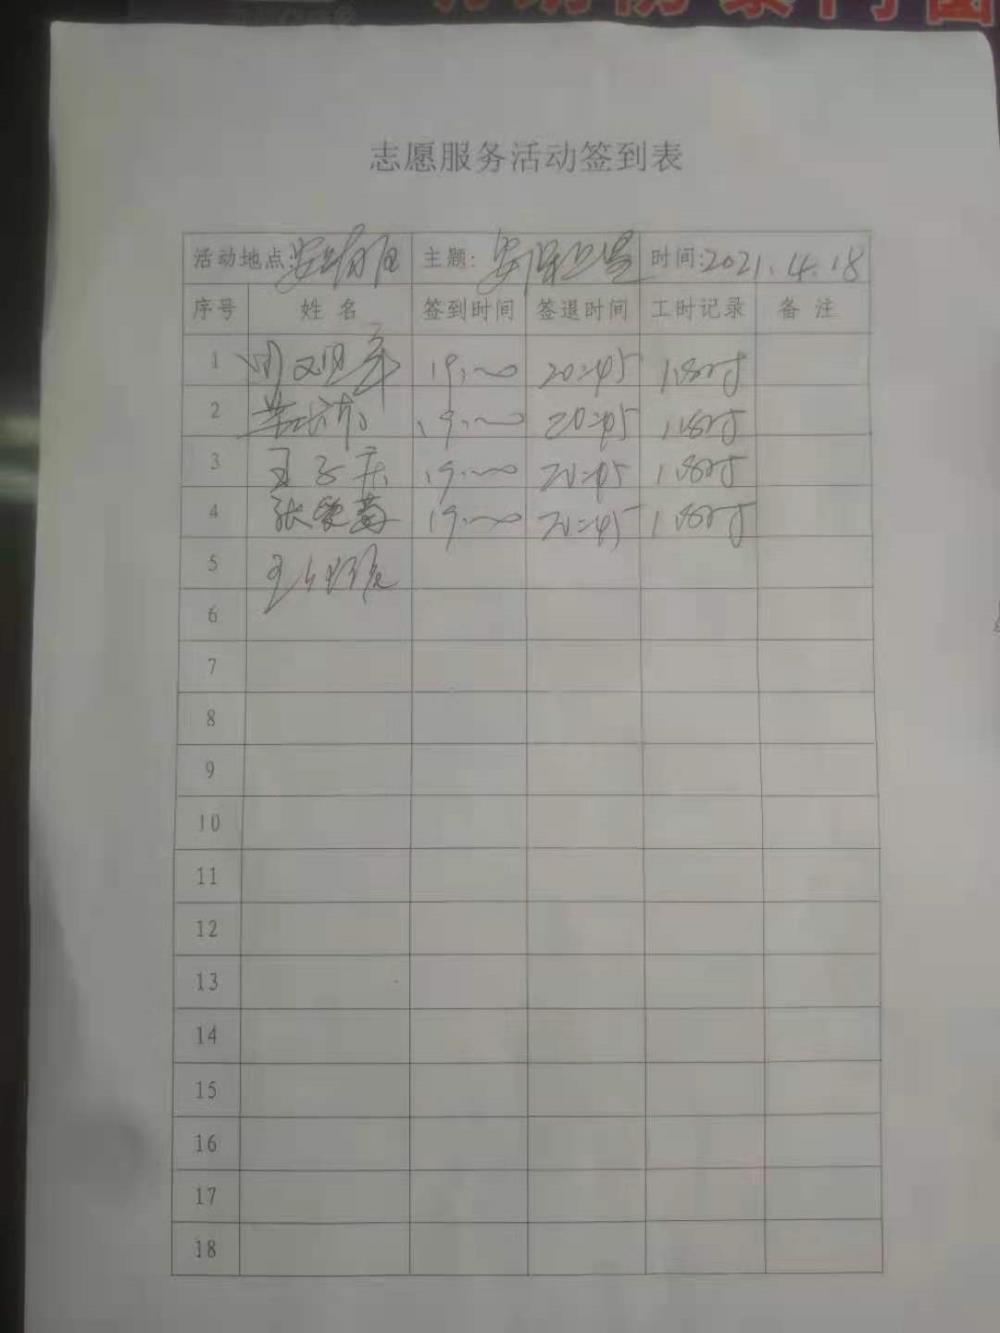 志愿服务活动签到表
活动地点: 主题: 时间:2021.4.18
序号 姓名 签到时间 签退时间 工时记录 备注
1 19:00 20:45 1.8小时
2 19:00 20:45 1.8小时
3 王 19:00 20:45 1.8小时
4 张爱菊 19:00 20:45 1.8小时
5 王
6
7
8
9
10
11
12
13
14
15
16
17
18